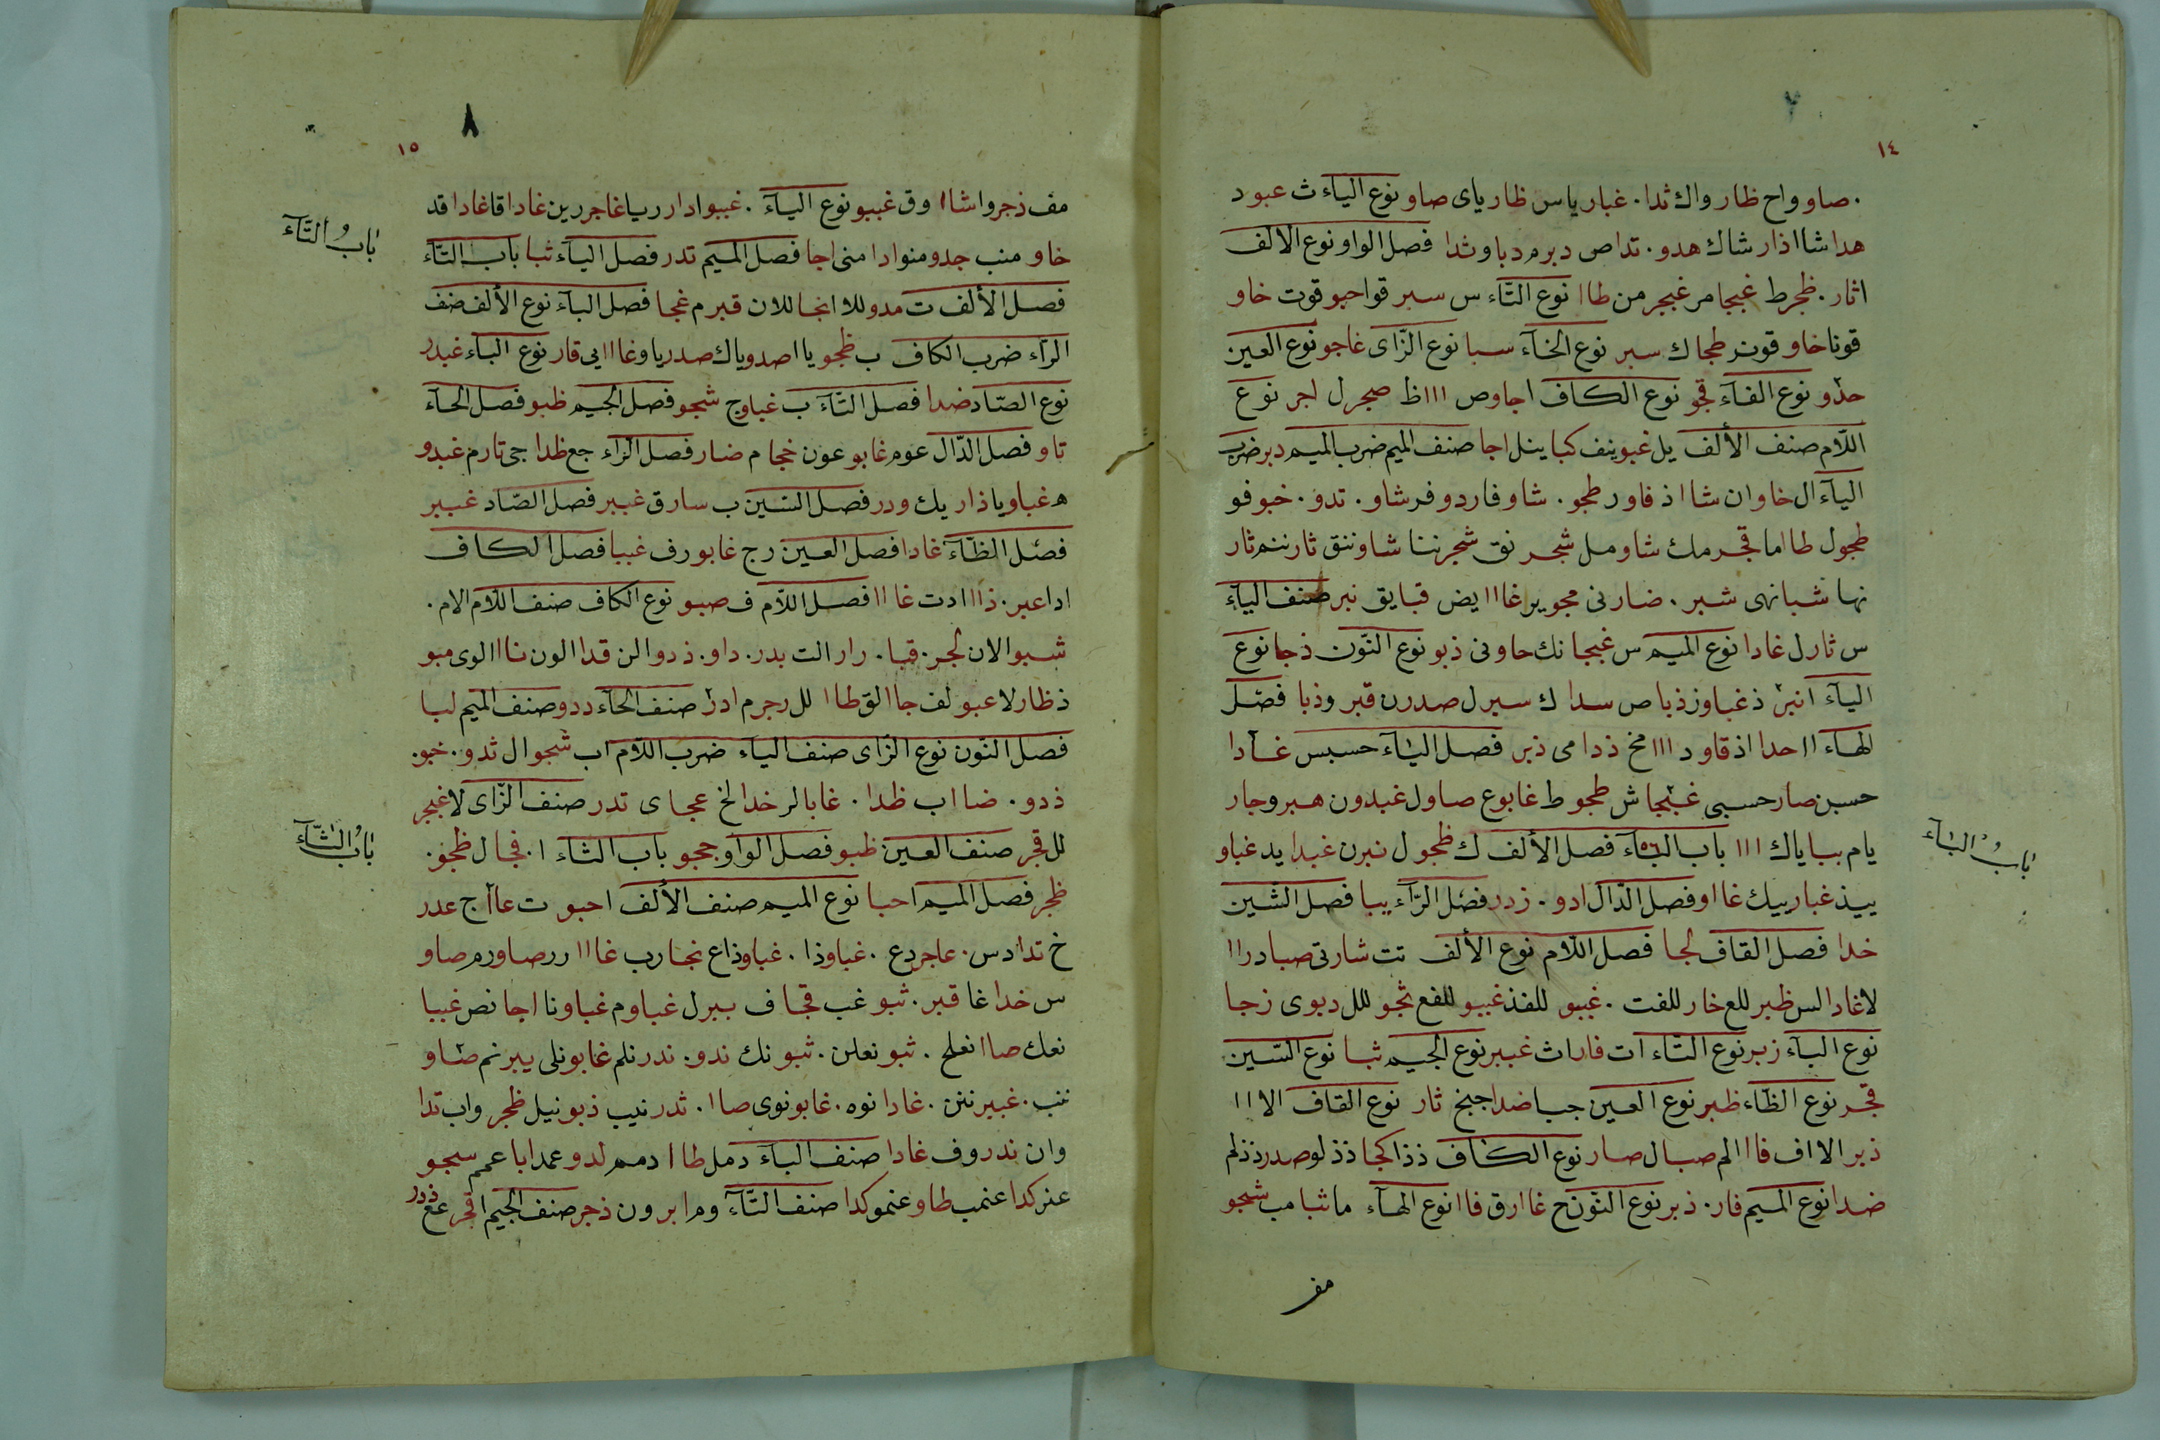 ٧
١٤
. صاو واح ظار واك ثدا . غبار ياس ظار ياى صاو نوع اليآء ث عبود
هدا شاا ذار شاك هدو . تداص دبرم دباو ثدا فصل الواو نوع الالف
اثار . ظجرط غبجا مر غبجر من طاا نوع التّآء س سبر قوا حبو قوت خاو
قونا خاو قونر طجا ك سبر نوع الخآء سبا نوع الزّاى غاجو نوع العين
حذو نوع الفآء قجو نوع الكاف اجاوص ااا ظ صجر ل اجر نوع
اللّام صنف الألف يل غبو ينف كبا ينل اجا صنف الميم ضرب الميم دبر ضرب
اليآء ال خاو ان شاا ذ فاو ر طجو . شاو فار دو فر شاو . تدو . خبو فو
طجول طا اما قجر مك شاو مل شجر نق شجر ننا شاو ننق ثار ننم ثار
نها شبا نهى شبر . ضار نى مجو ير غاا ا يض قبا يق نبر صنف اليآء
س ثار ل غادا نوع الميم س غبجا نك حاو نى ذبو نوع النّون ذجا نوع
اليآء انبن ذ غباو ز ذبا ص سدا ك سبر ل صدر ن قبر و ذبا فصل
الهآء اا حدا اذ قاو د ااا مخ ددا مى ذبر فصل اليآء حسبس غادا
حسبن صار حسبى غبجا ش طجو ط غابو ع صاو ل غبد ون هبر و جار
يام ببا ياك ااا باب البآء فصل الألف ك ظجو ل نبر ن غبدا يد غباو
ييذ غبار ييك غاا و فصل الدّال ادو . زدر فصل الرّآء يبا فصل الشّين
خدا فصل القاف لجا فصل اللّام نوع الألف تت شار تى صبا د راا
لا غادا لس ظبر للع خار للفت . غببو للفذ غببو للفع ثجو للل دبو ى زجا
نوع البآء زبر نوع التّآء ات فار اث غببر نوع الجيم ثبا نوع السّين
قجر نوع الظّآء ظبر نوع العين جبا ضدا جبخ ثار نوع القاف الا اا
ذبر الا اف فاا الم صبا ل صار نوع الكاف ذذا كجا ذذ لو صدر ذذ لم
ضدا نوع الميم فار . ذبر نوع النّون ح غاا رق فاا نوع الهآء ما ثبا مب شجو
مف
باب البآء
٨
١٥
مف ذجر وا شاا وق غببو نوع اليآء . غببو ادار ريا غاجر رين غادا قا غادا قد
خاو منب جدو منوا دا منى اجا فصل الميم تدر فصل اليآء ثبا باب التّآء
فصل الألف ت مدو للا انجا للان قبر م غجا فصل البآء نوع الألف صنف
الرآء ضرب الكاف ب ظجو يا اصدو ياك صدر ياو غاا ا بى قار نوع البآء غبدر
نوع الصّاد ضدا فصل التّآء ب غباو ج شجو فصل الجيم ظبو فصل الحآء
تاو فصل الدّال عوم غابو عون خجا م ضار فصل الرّآء جع ظدا جى تار م غبدو
ه غباو يا ذار يك ودر فصل السّين ب سار ق غببر فصل الصّاد غببر
فصل الظّآء غادا فصل العين رج غابو رف غببا فصل الكاف
اداعبر . ذاا ادت غاا ا فصل اللّام ف صبو نوع الكاف صنف اللّام الام .
شبو الان لجر . قبا . رار الت بدر . داو . ذدو الن قدا الون ناا الوى مبو
ذ ظار لا عبو لف جاا لق طاا لل رجر م ادر صنف الحآء ددو صنف الميم لبا
فصل النّون نوع الزّاى صنف اليآء ضرب اللّام اب شجو ال ثدو . خبو .
ذدو . ضاا اب ظدا . غابا لر خدا لخ عجا ى تدر صنف الزّاى لا غبجر
لل قجر صنف العين ظبو فصل الواو ججو باب الثآء ا . فجا ل ظجو .
ظجر فصل الميم احبا نوع الميم صنف الألف احبو ت عاا ج عدر
خ تدا دس . عاجر دع . غباو ذا . غباو ذاع نجا رب غاا ا رر صاو رم صاو
س خدا غا قبر . ثبو غب قجا ف ببر ل غباو م غباو نا اجا نص غببا
نعك صاا نعلح . ثبو نعلن . ثبو نك ندو . ندر نلم غابو نلى يبر نم صاو
ننب . غببر ننن . غادا نوه . غابو نوى صاا . ثدر نيب ذبو نيل ظجر واب تدا
وان ندر وف غادا صنف البآء دمل طاا دمم لدو عمدا با عمم سجو
عنر كدا عنمب طاو عنمو كدا صنف التّآء وم ابر ون ذجر صنف الجيم ا قجر عغ ذدر
باب التّآء
باب الثّآء